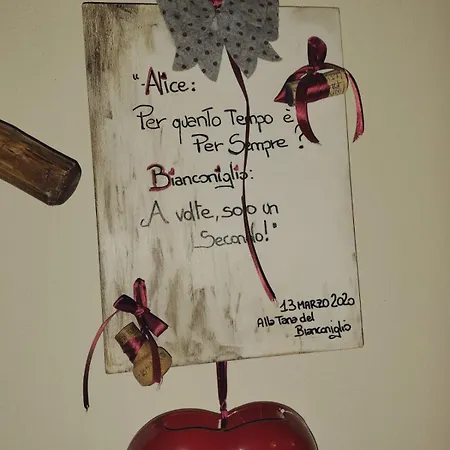 "Alice:
Per quanto Tempo è
Per Sempre?
Bianconiglio:
A volte, solo un
Secondo!"
13 MARZO 2020
Alla Tana del
Bianconiglio